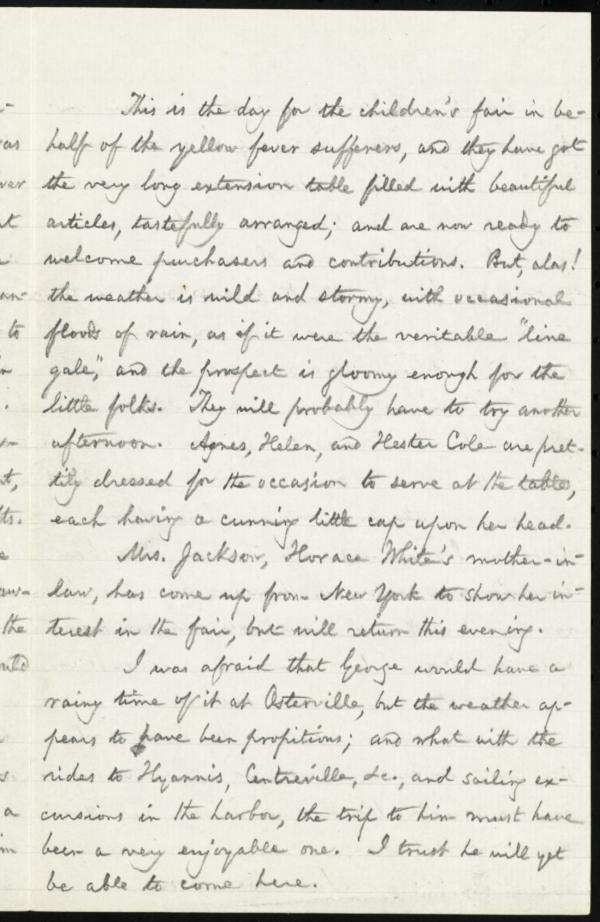 This is the day for the children's fair in be-
half of the yellow fever sufferers, and they have got
the very long extension table filled with beautiful
articles, tastefully arranged; and are now ready to
welcome purchasers and contributions. But, alas!
the weather is wild and stormy, with occasional
floods of rain, as if it were the veritable "line
gale," and the prospect is gloomy enough for the
little folks. They will probably have to try another
afternoon. Agnes, Helen, and Hester Cole are pret-
tily dressed for the occasion to serve at the tables,
each having a cunning little cap upon her head.
Mrs. Jackson, Horace White's mother-in-
law, has come up from New York to show her in-
terest in the fair, but will return this evening.
I was afraid that George would have a
rainy time of it at Osterville, but the weather ap-
pears to have been propitious; and what with the
rides to Hyannis, Centreville, &c., and sailing ex-
cursions in the harbor, the trip to him must have
been a very enjoyable one. I trust he will yet
be able to come here.